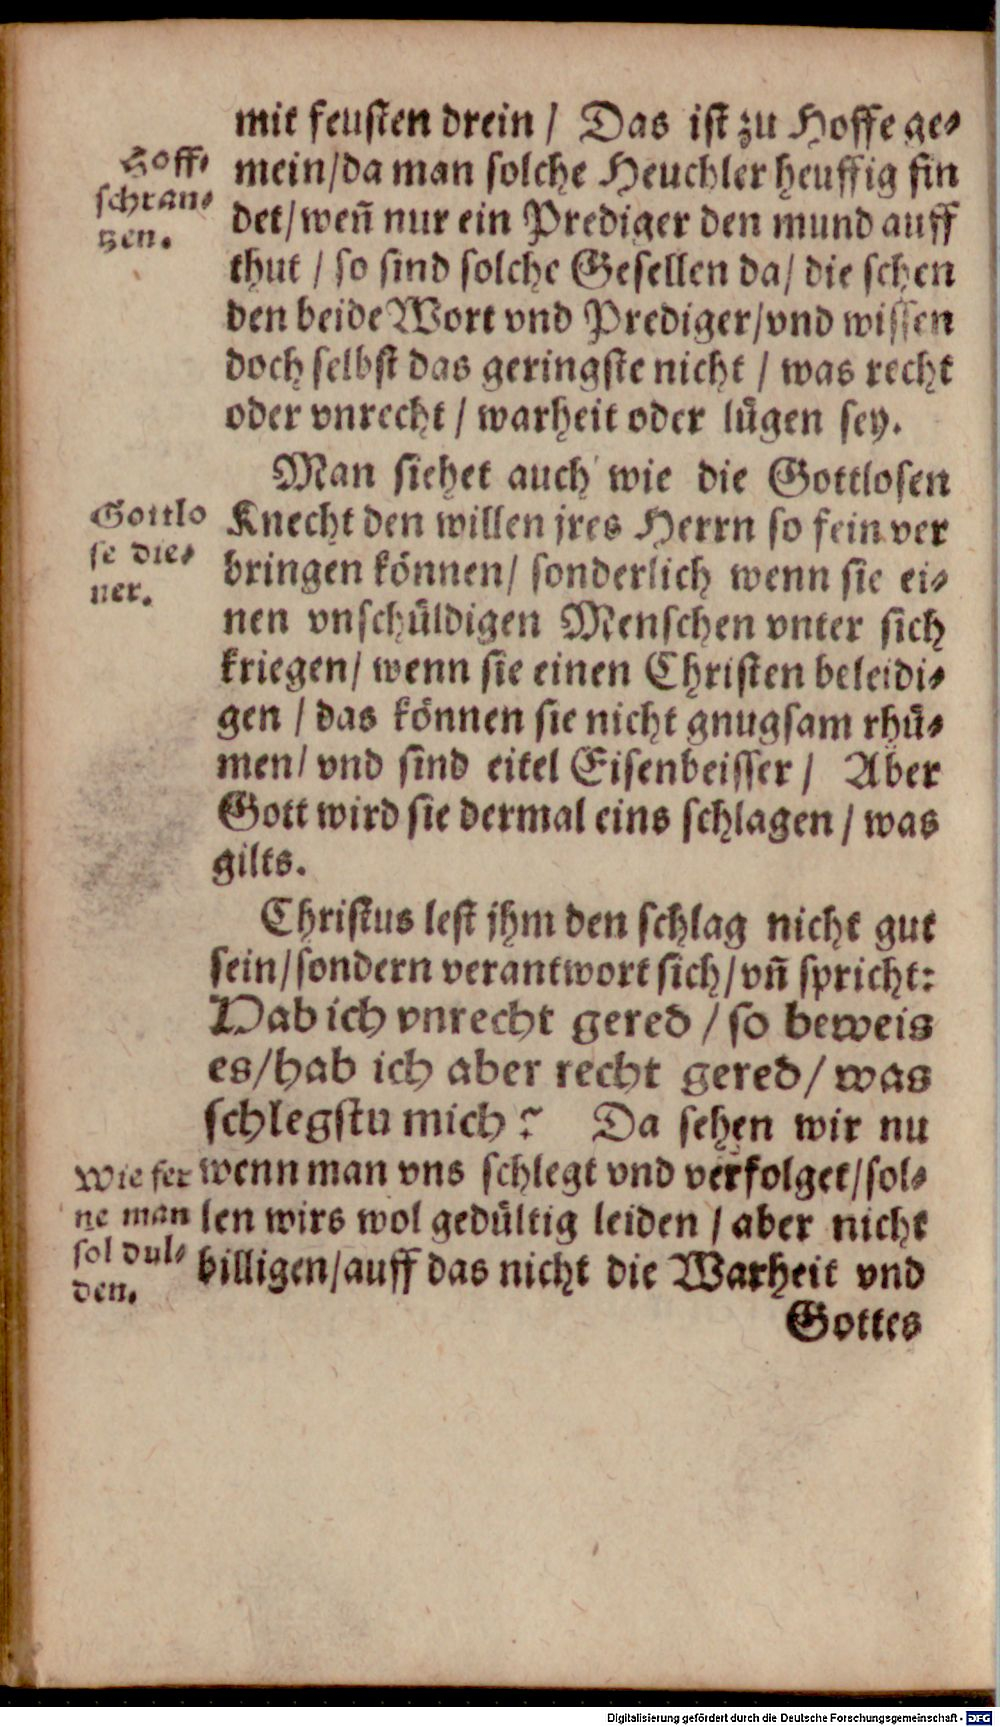 mit feuſten drein / Das iſt zu Hoffe ge⸗
mein/da man ſolche Heuchler heuffig fin
det/weñ nur ein Prediger den mund auff
thut / ſo ſind ſolche Geſellen da/ die ſchen
den beide Wort vnd Prediger/vnd wiſſen
doch ſelbſt das geringſte nicht / was recht
oder vnrecht / warheit oder lügen ſey.
Hoff⸗
ſchran⸗
tzen.
Man ſiehet auch wie die Gottloſen
Knecht den willen jres Herrn ſo fein ver
bringen können/ ſonderlich wenn ſie ei⸗
nen vnſchüldigen Menſchen vnter ſich
kriegen/ wenn ſie einen Chriſten beleidi⸗
gen / das können ſie nicht gnugſam rhü⸗
men/ vnd ſind eitel Eiſenbeiſſer / Aber
Gott wird ſie dermal eins ſchlagen / was
gilts.
Gottlo
ſe die⸗
ner.
Chriſtus leſt jhm den ſchlag nicht gut
ſein/ſondern verantwort ſich/vñ ſpricht:
Hab ich vnrecht gered / ſo beweis
es/hab ich aber recht gered/ was
ſchlegſtu mich? Da ſehen wir nu
wenn man vns ſchlegt vnd verfolget/ſol⸗
len wirs wol gedültig leiden / aber nicht
billigen/auff das nicht die Warheit vnd
Wie fer
ne man
ſol dul⸗
den.
Gottes
Digitalisierung gefördert durch die Deutsche Forschungsgemeinschaft - DFG